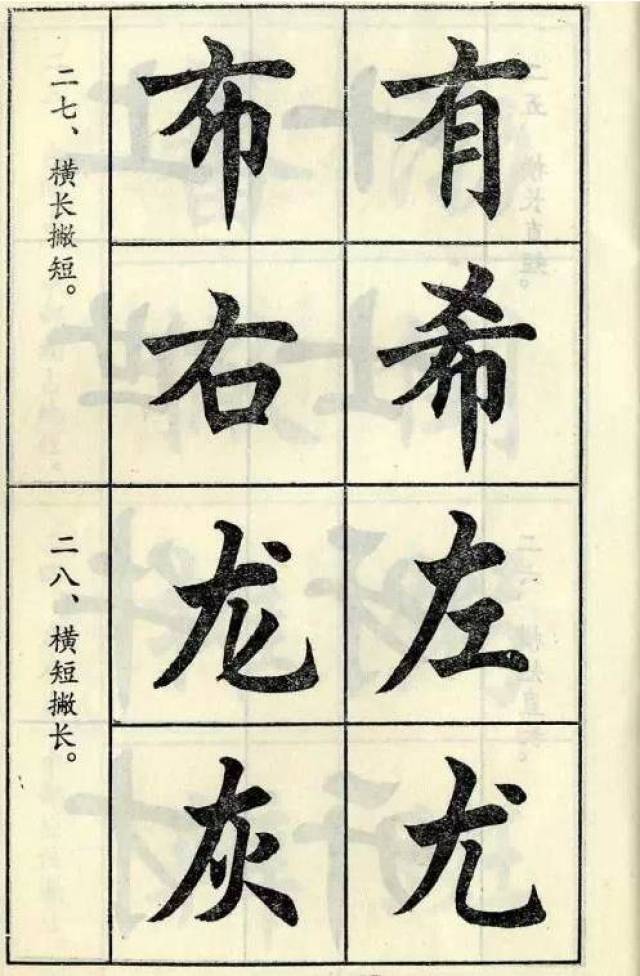 二七、横长撇短。
有
希
布
右
二八、横短撇长。
左
尤
龙
灰